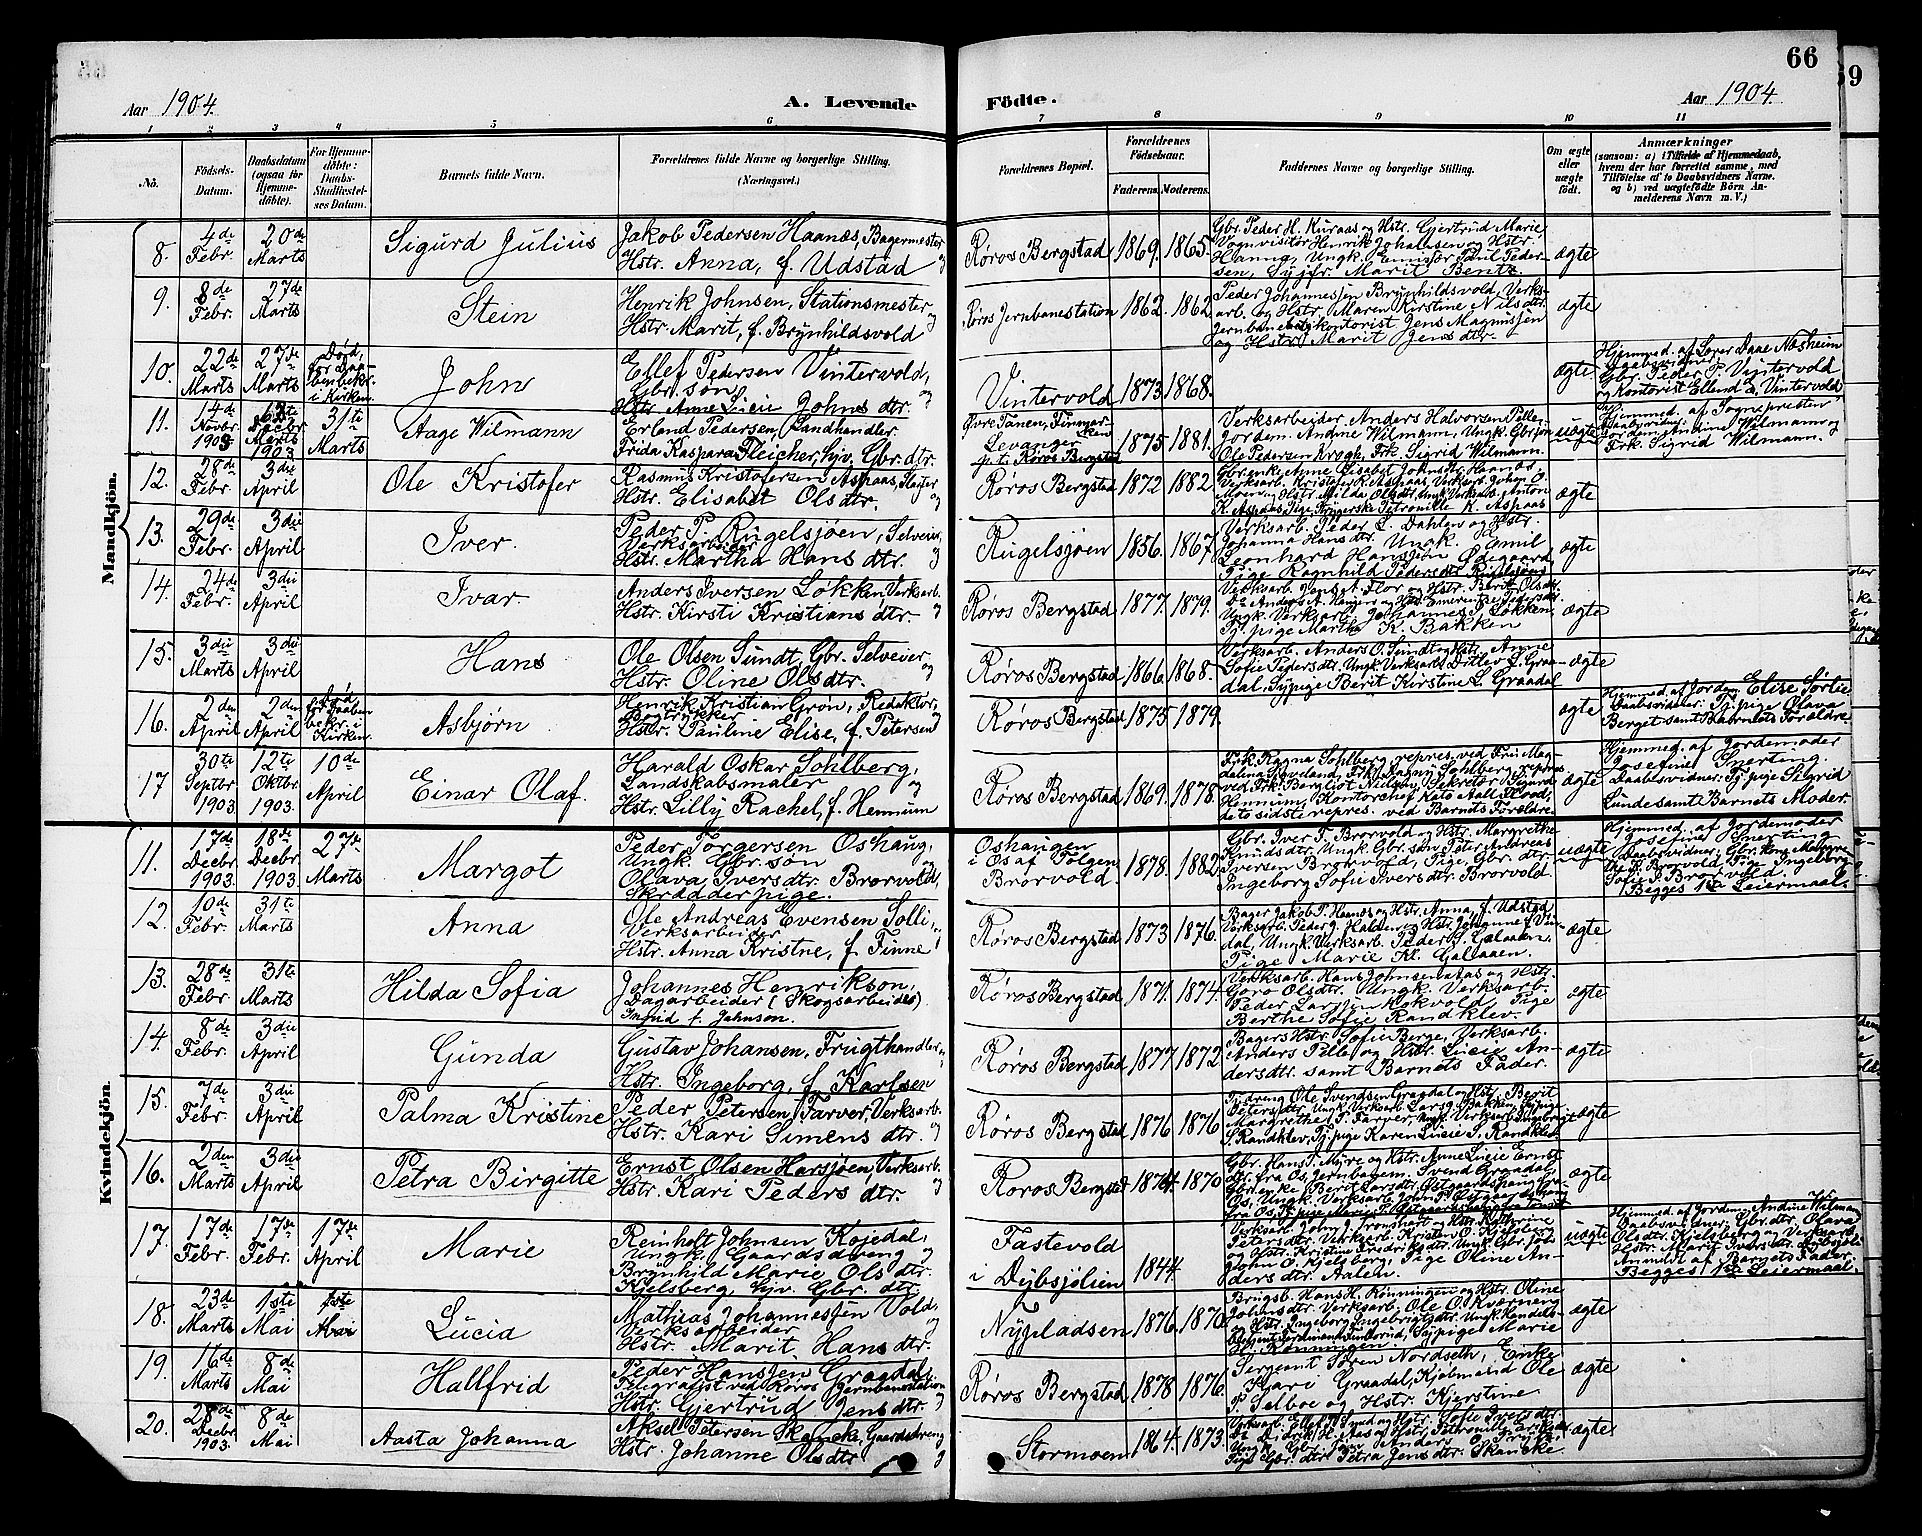 66
Aar 1904.
A. Levende
Födte.
Aar 1904.
1 2 3 4 5 6 7 8 9 10 11
No.
Födsels-Datum.
Daabsdatum (ogsaa for Hjemme-döbte).
For Hjemme-döbte: Daabs-Stadfæstel-ses Datum.
Barnets fulde Navn.
Forældrenes fulde Navne og borgerlige Stilling. (Næringsvei.)
Forældrenes Bopæl.
Forældrenes Födselsaar.
Faderens. Moderens.
Faddernes Navne og borgerlige Stilling.
Om ægte eller uægte födt.
Anmærkninger
(saasom: a) i Tilfælde af Hjemmedaab, hvem der har forrettet samme, med Tilföielse af to Daabsvidners Navne, og b) ved uægtefödte Börn An-melderens Navn m. V.)
Mandkjön.
8. 4de Febr. 20de Marts
Sigurd Julius
Jakob Pedersen Haanæs, Bagermester og
Hstr. Anna, f. Udstad
Røros Bergstad 1869. 1865.
Gbr. Peder H. Kuraas og Hstr. Gjertrud Marie
Vognvisitør Henrik Johansen og Hstr.
Hanna, Ungk. Ennisfør Paul Peder-
sen, Syjfr. Marit Bentz
ægte
9. 8de Febr. 27de Marts
Stein
Henrik Johnsen, Stationsmester og
Hstr. Marit, f. Brynhildsvold
Røros Jernbanestation 1862. 1862
Peder Johannesen Brynhildsvold, Verks-
arb. og Hstr. Maren Kirstine Nilsdtr.
Jernbanekontorist Jens Magnussen
og Hstr. Marit Jensdtr.
ægte
10. 22de Marts 27de Marts
Død, før Daa-
ben bekr.
i Kirken
John
Ellef Pedersen Vintervold,
Gbr. søn og
Hstr. Anne Lisie Johnsdtr.
Vintervold 1873. 1868.
ægte
Hjemmed. af Lærer Daae Næsheim
Gbr. Peder P. Vintervold
og Kontorist Ellend a. Vintervold
11. 14de Novbr. 1903
Decbr. 1903
31te Marts
Aage Wilmann
Erland Pedersen, Landhandler.
Frida Kaspara Fleicher, hjv. Gbr. dtr.
Øvre Tanen, Finmarken
Levanger
p.t. Røros Bergstad
1875 1881.
Verksarbeider Anders Halvorsen Pelle
Jordem. Andine Wilmann, Ungk. Gbr. søn
Ole Pedersen Krogh, Frk. Sigrid Wilmann.
uægte
Hjemmed. af Sognepresten
Jordem. Andine Wilmann og
Frk. Sigrid Wilmann.
12. 28de Febr. 3die April
Ole Kristofer
Rasmus Kristofersen Aspaas, Slagter og
Hstr. Elisabet Olsdtr.
Røros Bergstad 1872 1882
Gbr. enke Anne Elisabet Johnsdtr. Haanæs
Verksarb. Kristofer R. Aspaas, Verksarb. Johan O.
Moen og Hstr. Milda Olsdtr. Ungk. Verksarb. Anton
K. Aspaas, Pige Petronille K. Aspaas
ægte
13. 29de Febr. 3die April
Iver.
Peder P. Rugelsjøen, Selveier,
Verksarbeider og
Hstr. Martha Hansdtr.
Rugelsjøen 1856. 1867.
Verksarb. Peder L. Dahlen og Hstr.
Johanna Hansdtr. Ungk. Emil
Leonhard Hansen Ødegaard
Pige Ragnhild Pedersdtr.
ægte
14. 24de Febr. 3die April
Ivar.
Anders Iversen Løkken, Verksarb. og
Hstr. Kirsti Kristiansdtr.
Røros Bergstad 1877. 1879.
Verksarb. Jens A. Flor og Hstr. Berit Olsdtr.
Ungk. Verksarb. Johannes I. Løkken
Tj. pige Martha K. Bakken
ægte
15. 3die Marts 3die April
Hans
Ole Olsen Sundt, Gbr. Selveier og
Hstr. Oline Olsdtr.
Røros Bergstad 1866. 1868.
Verksarb. Anders O. Sundt og Hstr. Anne
Sofie Pedersdtr. Ungk. Verksarb. Ditlev L. Graa-
dal, Sypige Berit Kirstine L. Graadal
ægte
16. 2den April 2den April
Død før Daaben
bekr. i
Kirken
Asbjørn
Henrik Kristian Grøn, Redaktør,
Bogtrykker og
Hstr. Pauline Elise, f. Petersen
Røros Bergstad 1875 1879.
ægte
Hjemmed. af Jordm. Elise Sørlie
Daabsvidner: Tj. pige Olava
Berget samt Barnets Forældre
17 30te Septbr 1903 12te Oktbr. 1903. 10de April
Einar Olaf.
Harald Oskar Sohlberg,
Landskabsmaler og
Hstr. Lilly Rachel, f. Hennum
Røros Bergstad 1869. 1878.
Frk. Ragna Sohlberg repres. ved Fru Mag-
dalena Haveland, Frk. Dagny Sohlberg repres.
ved Frk. Bergliot Nielsen, Sekretær Sigurd
Hennum, Kontorchef Kato Aall
de to sidste repres. ved Barnets Forældre.
ægte
Hjemmed. af Jordemoder
Josefine Snerting.
Daabsvidner: Tj. pige Sigrid
Lunde samt Barnets Moder.
Kvindekjön.
11. 17de Decbr 1903. 18de Decbr. 1903. 27de Marts
Margot
Peder Torgersen Oshaug,
Ungk. Gbr. søn og
Olava Iversdtr. Brorvold,
Skrædderpige.
Oshaugen
i Os af Tolgen
Brorvold.
1878. 1882.
Gbr. Iver T. Brorvold og Hstr. Margrethe
Knudsdtr. Ungk. Gbr. søn Peter Andreas
Iversen Brorvold, Pige, Gbr. dtr.
Ingeborg Sofie Iversdtr. Brorvold.
uægte
Hjemmed. af Jordemoder
Josefine Snerting
Daabsvidner: Gbr. kone Margre-
the K. Brorvold, Pige Ingeborg
Sofie I. Brorvold.
Begges 1ste Leiermaal.
12. 10de Febr. 31te Marts
Anna
Ole Andreas Evensen Solli,
Verksarbeider og
Hstr. Anna Kristne, f. Finne
Røros Bergstad 1873 1876.
Bager Jakob P. Haanæs og Hstr. Anna, f. Udstad
Verksarb. Peder J. Halden og Hstr. Johanne f. Vin-
dal, Ungk. Verksarb. Peder S. Galaaen,
Pige Marie Kl. Galaaen.
ægte
13. 28de Febr. 31te Marts
Hilda Sofia
Johannes Henrikson,
Dagarbeider (Skogsarbeider)
Ingrid f. Jahnson.
Røros Bergstad 1871. 1874.
Verksarb. Hans Johnsen Aas og Hstr.
Goro Olsdtr. Ungk. Verksarb.
Peder Larsen Kokvold, Pige
Berthe Sofie Randklev.
ægte
14. 8de Febr. 3die April
Gunda
Gustav Johansen, Frugthandler og
Hstr. Ingeborg, f. Karlsen
Røros Bergstad 1877 1872
Bagers Hstr. Sofie Berge, Verksarb.
Anders Pelle og Hstr. Lisie An-
dersdtr. samt Barnets Fader.
ægte
15. 7de Febr. 3die April
Palma Kristine
Peder Petersen Farver, Verksarb. og
Hstr. Kari Simensdtr.
Røros Bergstad 1876 1876
Ole Svendsen Graadal og Hstr. Berit
Petersdtr. Ungk. Verksarb. Lars J. Bakken, Pige
Margrethe P. Farver, Ungk. Verksarb. Ingebrigt
S. Randklev, Tj. pige Karen Lisie S. Randklev
ægte
16. 2den Marts 3die April
Petra Birgitte
Ernst Olsen Harsjøen, Verksarb. og
Hstr. Kari Pedersdtr.
Røros Bergstad 1874. 1870
Gbr. Hans T. Myre og Hstr. Anne Lisie Ernst-
dtr. fra Os, Jernbanem. Svend Graadal,
Gbr. enke Birit Larsdtr. Østgaardshaug fra
Os, Ungk. Verksarb. John P. Østgaardshaug
ægte
17. 17de Febr. 17de Febr. 17de April
Marie
Reinholt Johnsen Kojedal,
Ungk. Gaardsdreng og
Brynhild Marie Olsdtr.
Kjelsberg, hjv. Gbr. dtr.
Fastevold
i Dybsjølien 1844
Verksarb. John J. Tronshart og Hstr. Kathrine
Petersdtr. Verksarb. Kristen O. Kjelsberg
og Hstr. Kristine Fredriksdtr. Ungk. Gbr. søn
John O. Kjelsberg, Pige Oline An-
dersdtr. Aalen.
uægte
Hjemmed. af Jordem. Andine Wilmann
Daabsvidner: Gbr. dtr. Olava
Olsdtr. Kjelsberg og Verksarb.
Hstr. Marit Iversdtr. Dybsjøli
Anmeldt af Barnets Fader.
Begges 1ste Leiermaal.
18. 23de Marts 1ste Mai 1ste Mai
Lucia
Mathias Johannessen Vold,
Verksarbeider og
Hstr. Marit Hansdtr.
Nypladsen 1876. 1870
Brugsb. Hans H. Rønningen og Hstr. Oline
Johnsdtr. Verksarb. Ole O. Kværnen
og Hstr. Ingeborg Ingebrigtsdtr. Ungk. Handels-
betjent Ferdinand Sundbrud, Sypige Marie
El. Rønningen.
ægte
19. 16de Marts 8de Mai
Hallfrid
Peder Hansen Graadal,
Telegrafist ved Røros Jernbanestation og
Hstr. Gjertrud Jensdtr.
Røros Bergstad. 1878 1876.
Sergeant Søren Nordseth, Enke
Kari Graadal, Kjøbmand Ole
P. Selboe og Hstr. Kjerstine
ægte
20. 28de Decbr. 1903. 8de Mai
Aasta Johanna
Aksel Petersen Skancke, Gaardsdreng og
Hstr. Johanne Olsdtr
Stormoen 1864. 1873.
Verksarb. Ellef P. Sund og Hstr. Sofie Iversdtr.
Didrik H. Aas og Hstr. Petronille
Ungk. Gbr. søn Anders O.
Pige Gbr. dtr. Petra Jensdtr. Skancke
ægte